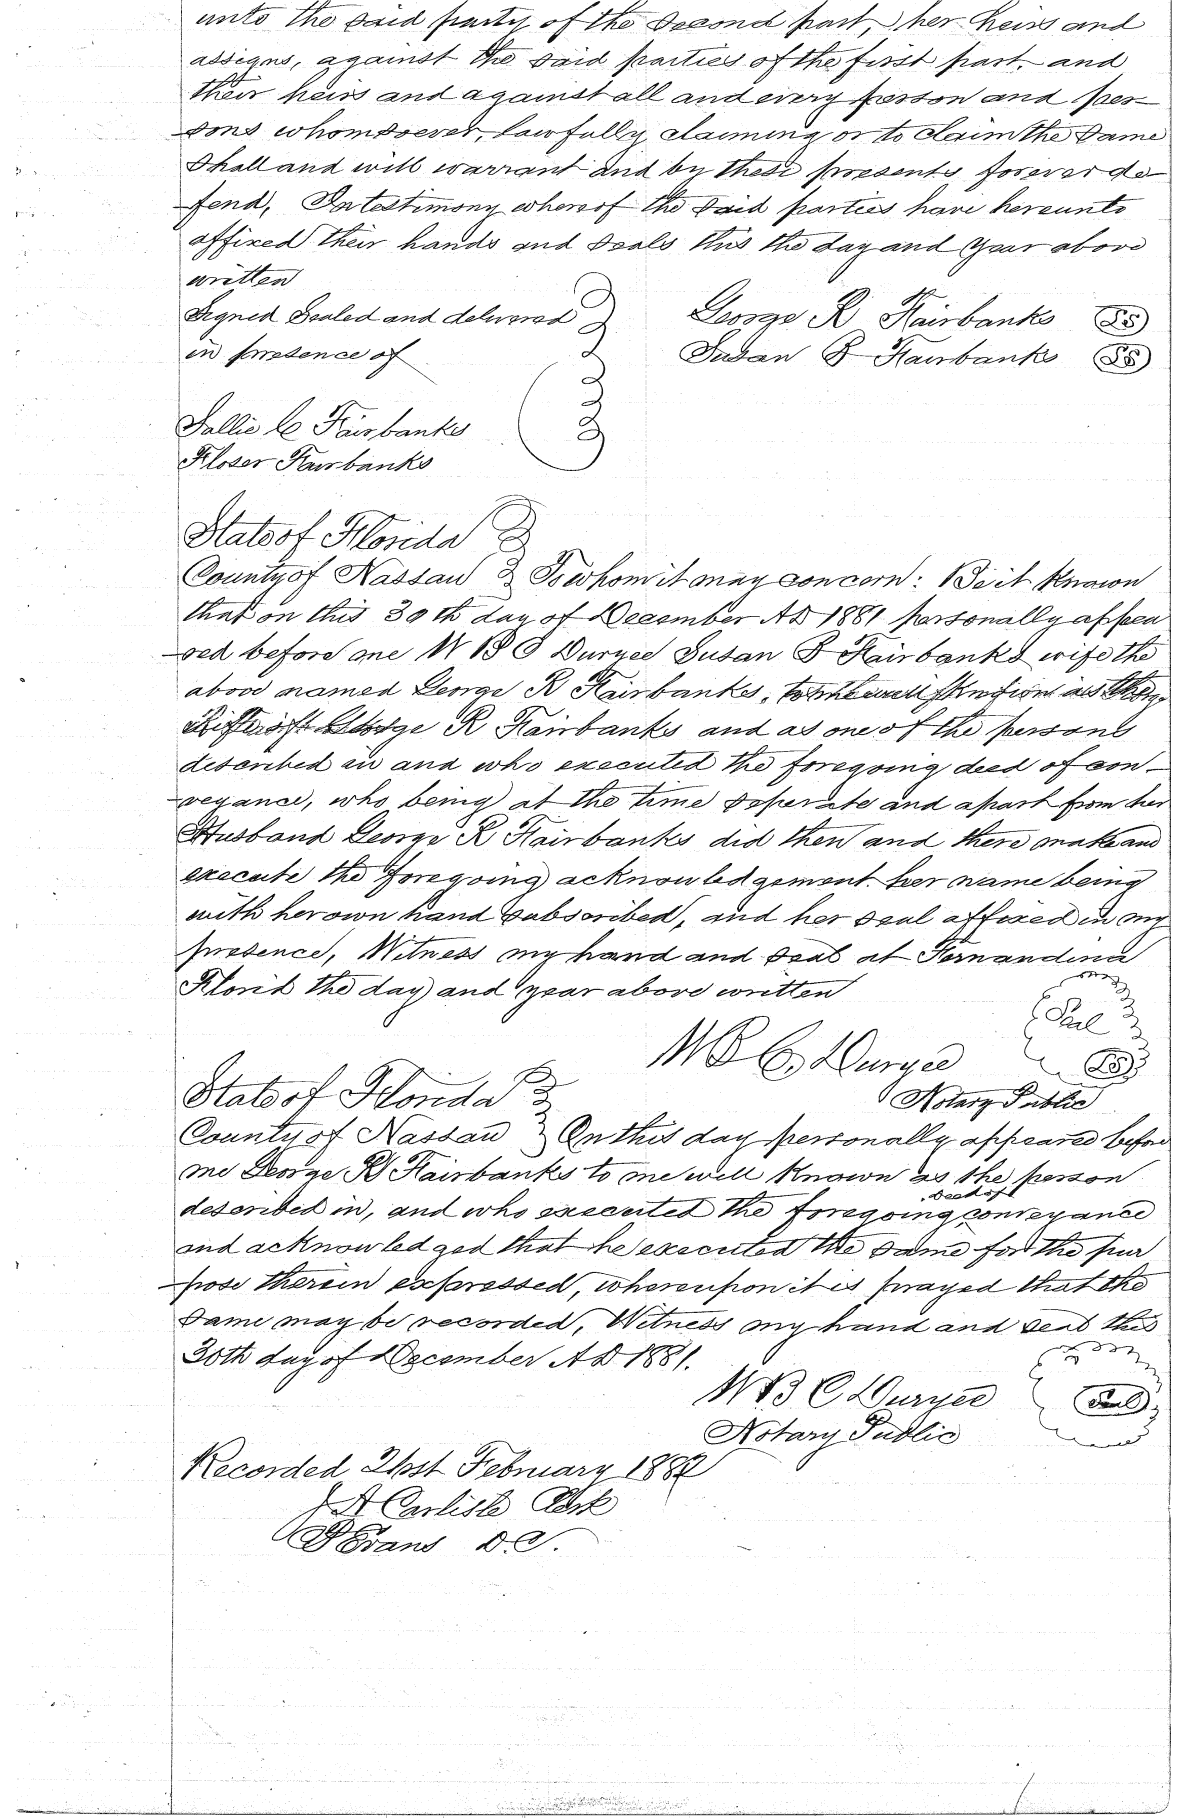 unto the said party of the second part, her heirs and
assigns, against the said parties of the first part, and
their heirs and against all and every person and per-
sons whomsoever, lawfully claiming or to claim the same
shall and will warrant and by these presents forever de-
fend, In testimony whereof the said parties have hereunto
affixed their hands and seals this the day and year above
written
Signed Sealed and delivered
in presence of
George R Fairbanks LS
Susan B Fairbanks LS
Sallie C Fairbanks
Floser Fairbanks
State of Florida
County of Nassau To whom it may concern: Be it Known
that on this 30th day of December AD 1881 personally appea
red before me W B C Duryee Susan B Fairbanks wife the
above named George R Fairbanks,
George R Fairbanks and as one of the persons
described in and who executed the foregoing deed of con-
veyance, who being at the time seperate and apart from her
Husband George R Fairbanks did then and there make and
execute the foregoing acknowledgement her name being
with her own hand subscribed, and her seal affixed in my
presence, Witness my hand and seal at Fernandina
Florid the day and year above written
Seal
W B C Duryee LS
Notary Public
State of Florida
County of Nassau On this day personally appeared before
me George R Fairbanks to me well Known as the person
deed of
described in, and who executed the foregoing conveyance
and acknowledged that he executed the same for the pur
pose therein expressed, whereupon it is prayed that the
same may be recorded, Witness my hand and seal this
30th day of December AD 1881.
W B C Duryee Seal
Notary Public
Recorded 21st February 1882
J A Carlisle Clerk
Evans D.C.